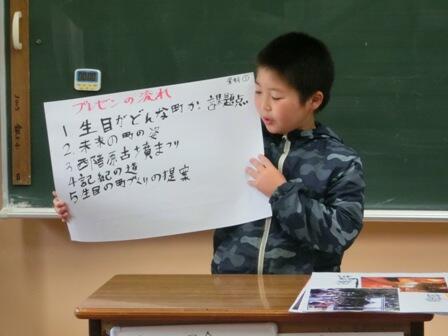 資料①
プレゼンの流れ
1 生目がどんな町か・課題点
2.未来の町の姿
3 西都原古墳まつり
4 記紀の道
5 生目の町づくりの提案